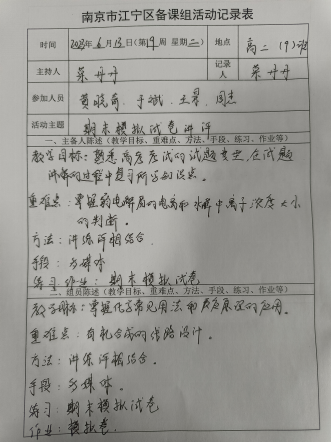 南京市江宁区备课组活动记录表
时间 2023年6月13日(第19周 星期二) 地点 高二(9)班
主持人 菜丹丹 记录人 菜丹丹
参加人员 黄晓奇、于斌、王昇、周杰
活动主题 期末模拟试卷讲评
一、主备人陈述(教学目标、重难点、方法、手段、练习、作业等)
教学目标:熟悉高考考试的试题类型,在试题
讲解的过程中复习所学知识点。
重难点:掌握弱电解质的电离和水解中离子浓度大小
的判断。
方法:讲练评相结合.
手段:多媒体.
练习作业:期末模拟试卷
二、组员陈述(教学目标、重难点、方法、手段、练习、作业等)
教学目标:掌握化学常见用法和 的应用.
重难点:有机合成的线路设计.
方法:讲练评相结合.
手段:多媒体.
练习:期末模拟试卷
作业:模拟卷.